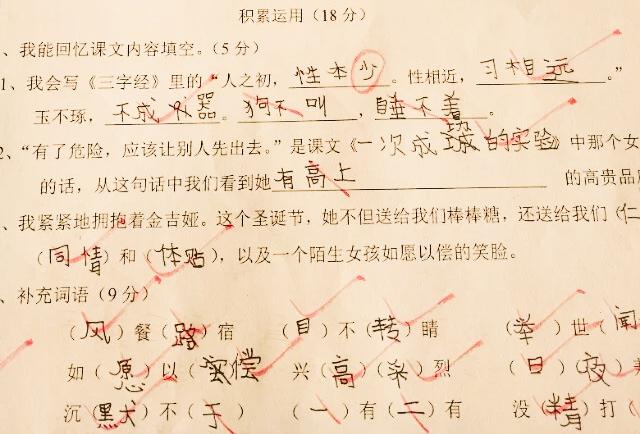 积累运用（18分）
、我能回忆课文内容填空。（5分）
1、我会写《三字经》里的“人之初，性本少。性相近，习相远。”
玉不琢，不成器。狗不叫，睡不着。
2、“有了危险，应该让别人先出去。”是课文《一次成功的实验》中那个女
的话，从这句话中我们看到她有高上的高贵品
、我紧紧地拥抱着金吉娅。这个圣诞节，她不但送给我们棒棒糖，还送给我们（仁
（同情）和（体贴），以及一个陌生女孩如愿以偿的笑脸。
、补充词语（9分）
（风）餐（路）宿 （目）不（转）睛 （举）世（闻
如（愿）以（偿） 兴（高）（采）烈 （日）（夜）兼
沉（默）不（于） （一）有（二）有 没（精）打（